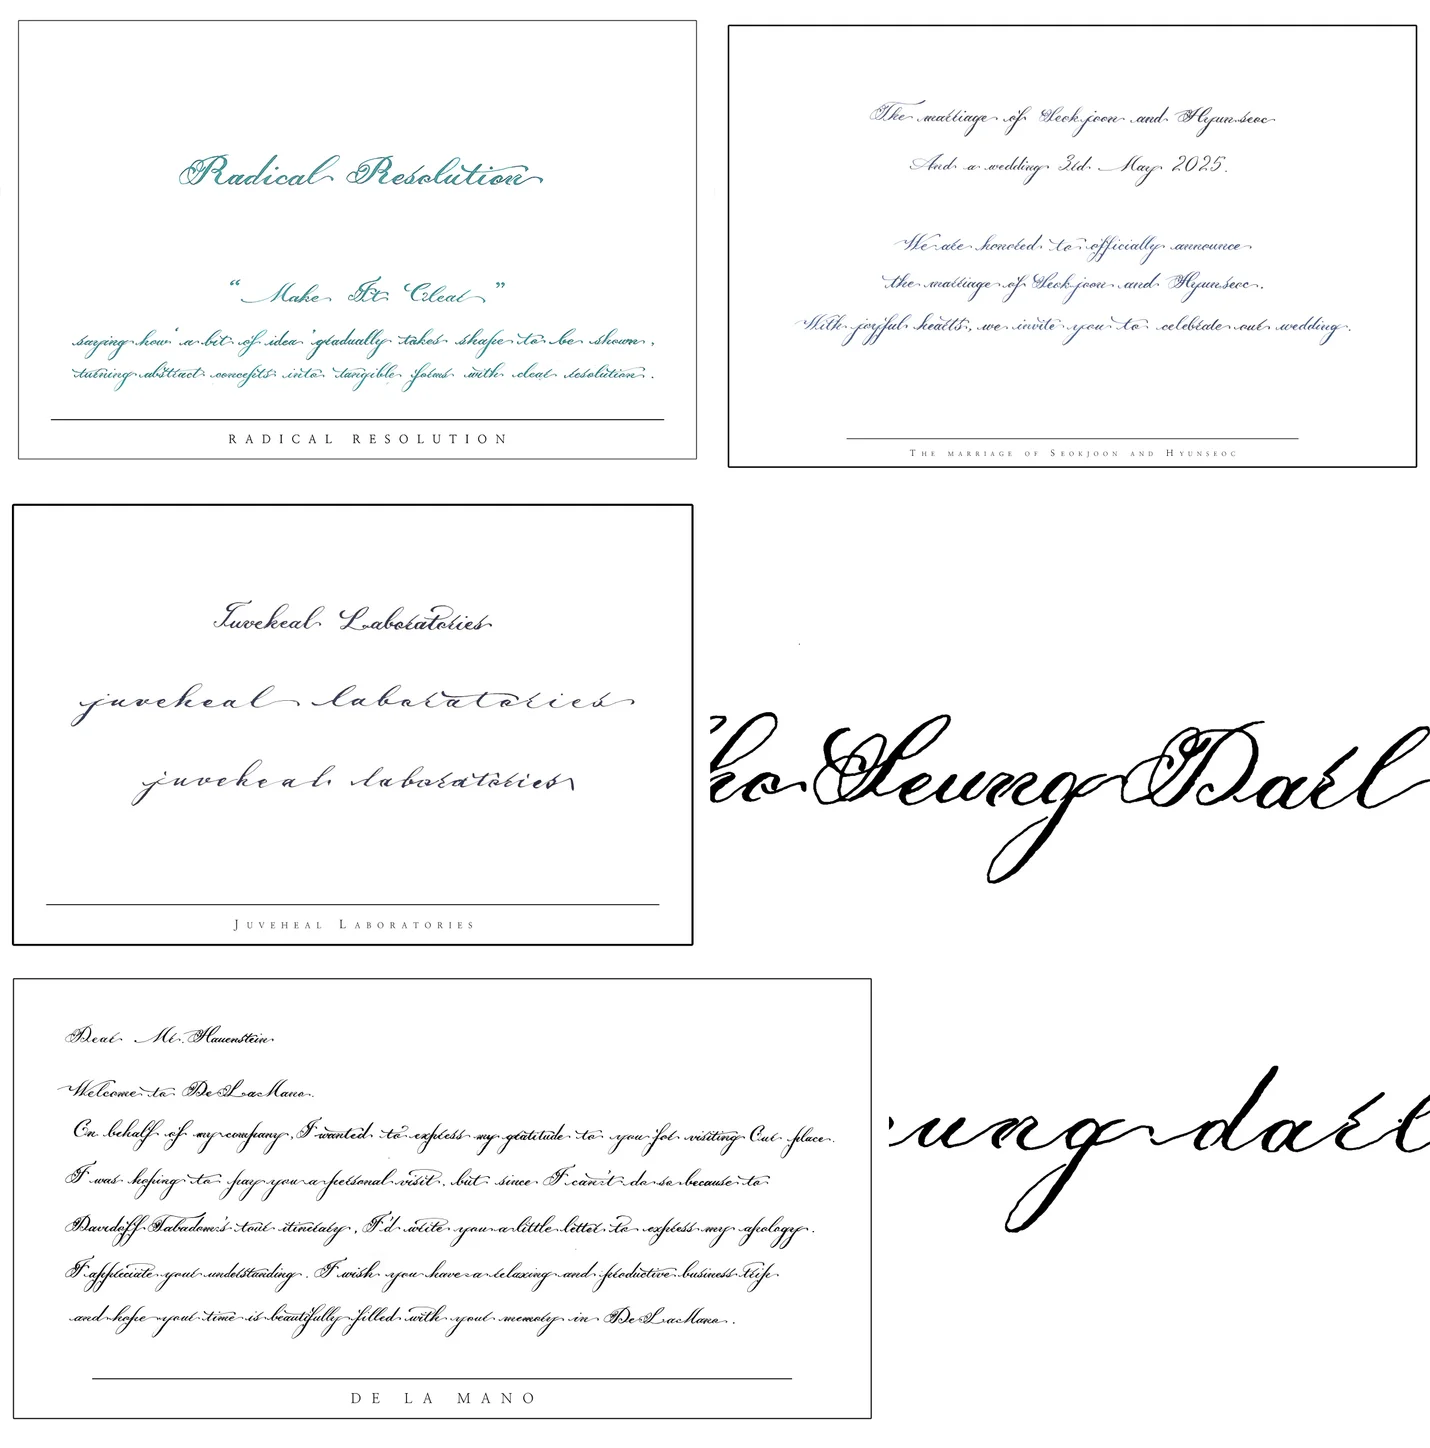 Radical Resolution
“ Make It Clear ”
saying how ‘ a bit of idea ’ gradually takes shape to be shown,
turning abstract concepts into tangible forms with clear resolution.
RADICAL RESOLUTION
The marriage of Seokjoon and Hyunseoc
And a wedding 3rd May 2025.
We are honored to officially announce
the marriage of Seokjoon and Hyunseoc.
With joyful hearts, we invite you to celebrate our wedding.
THE MARRIAGE OF SEOKJOON AND HYUNSEOC
Juveheal Laboratories
juveheal laboratories
juveheal laboratories
JUVEHEAL LABORATORIES
ho Seung Darl
eung darl
Dear Mr. Hauenstein
Welcome to De La Mano.
On behalf of my company, I wanted to express my gratitude to you for visiting Our place.
I was hoping to pay you a personal visit, but since I can't do so because to
Davidoff Tabadom's tour itinerary, I'd write you a little letter to express my apology.
I appreciate your understanding. I wish you have a relaxing and productive business trip
and hope your time is beautifully filled with your memory in De La Mano.
DE LA MANO